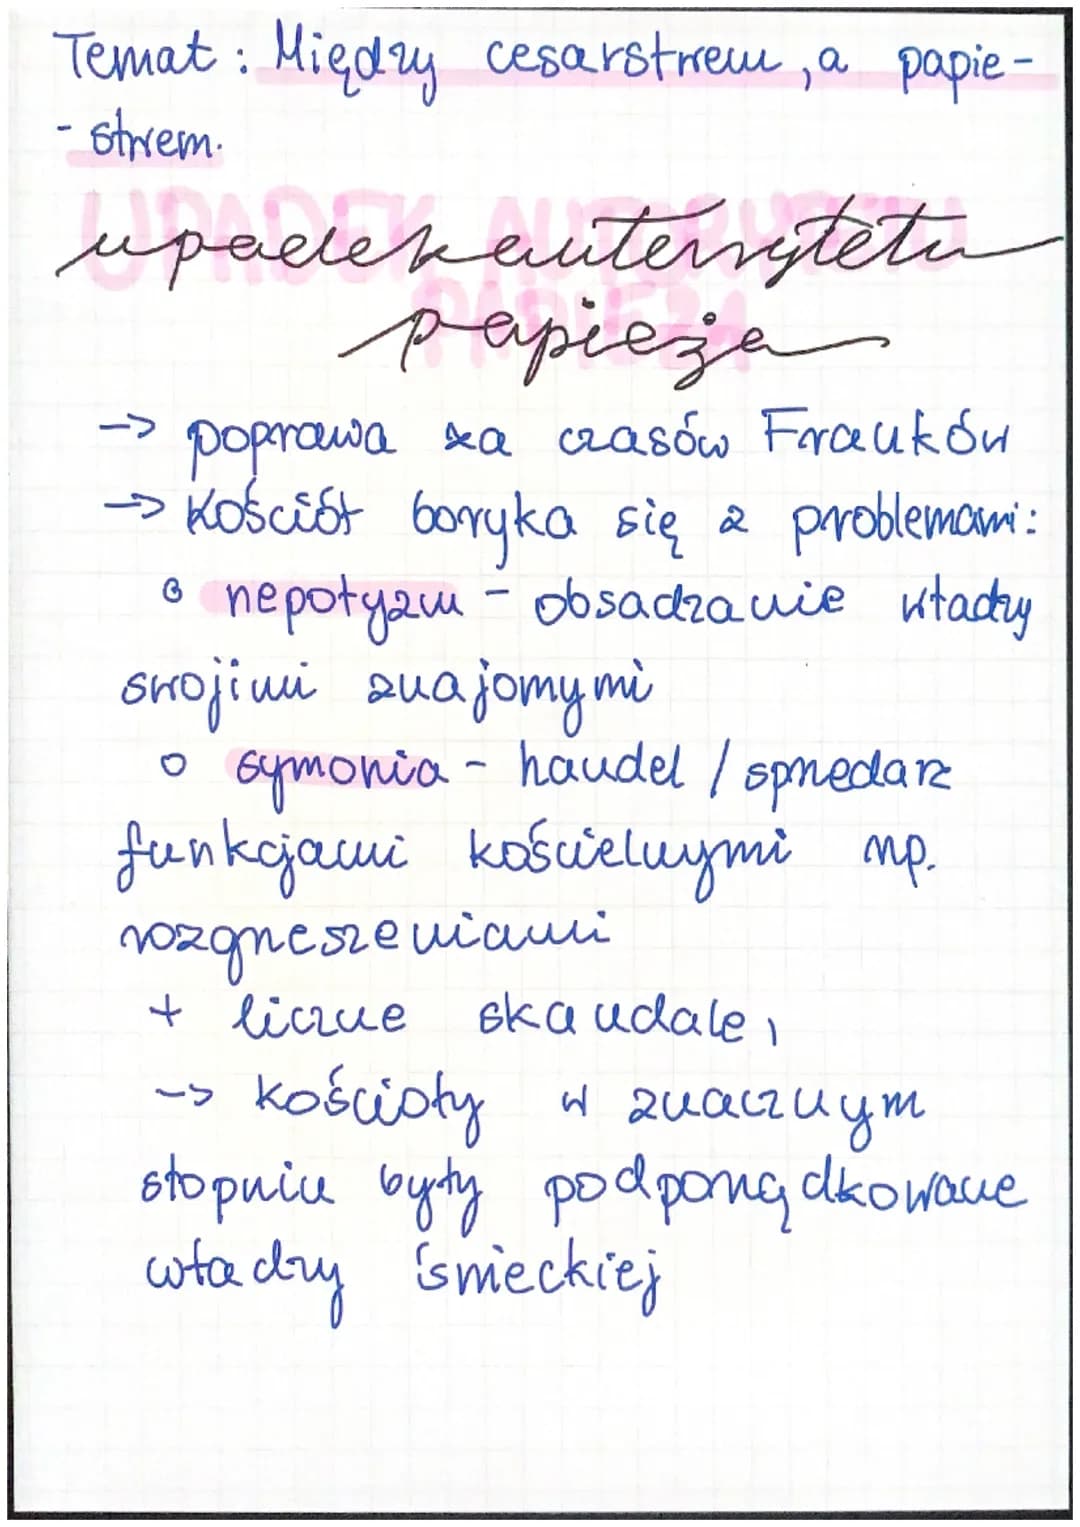 Temat: Między cesarstwem, a papie-
- stwem.
UPADEK AUTORYTETU
upadek autorytetu
PAPIEŻA
papieża
-> poprawa za czasów Franków
-> Kościół boryka się z problemami:
o nepotyzm - obsadzanie władzy
swojimi znajomymi
o symonia - handel / sprzedarz
funkcjami kościelnymi np.
rozgrzeszeniami
+ liczne skandale,
-> kościoły w znacznym
stopniu były podporządkowane
władzy świeckiej